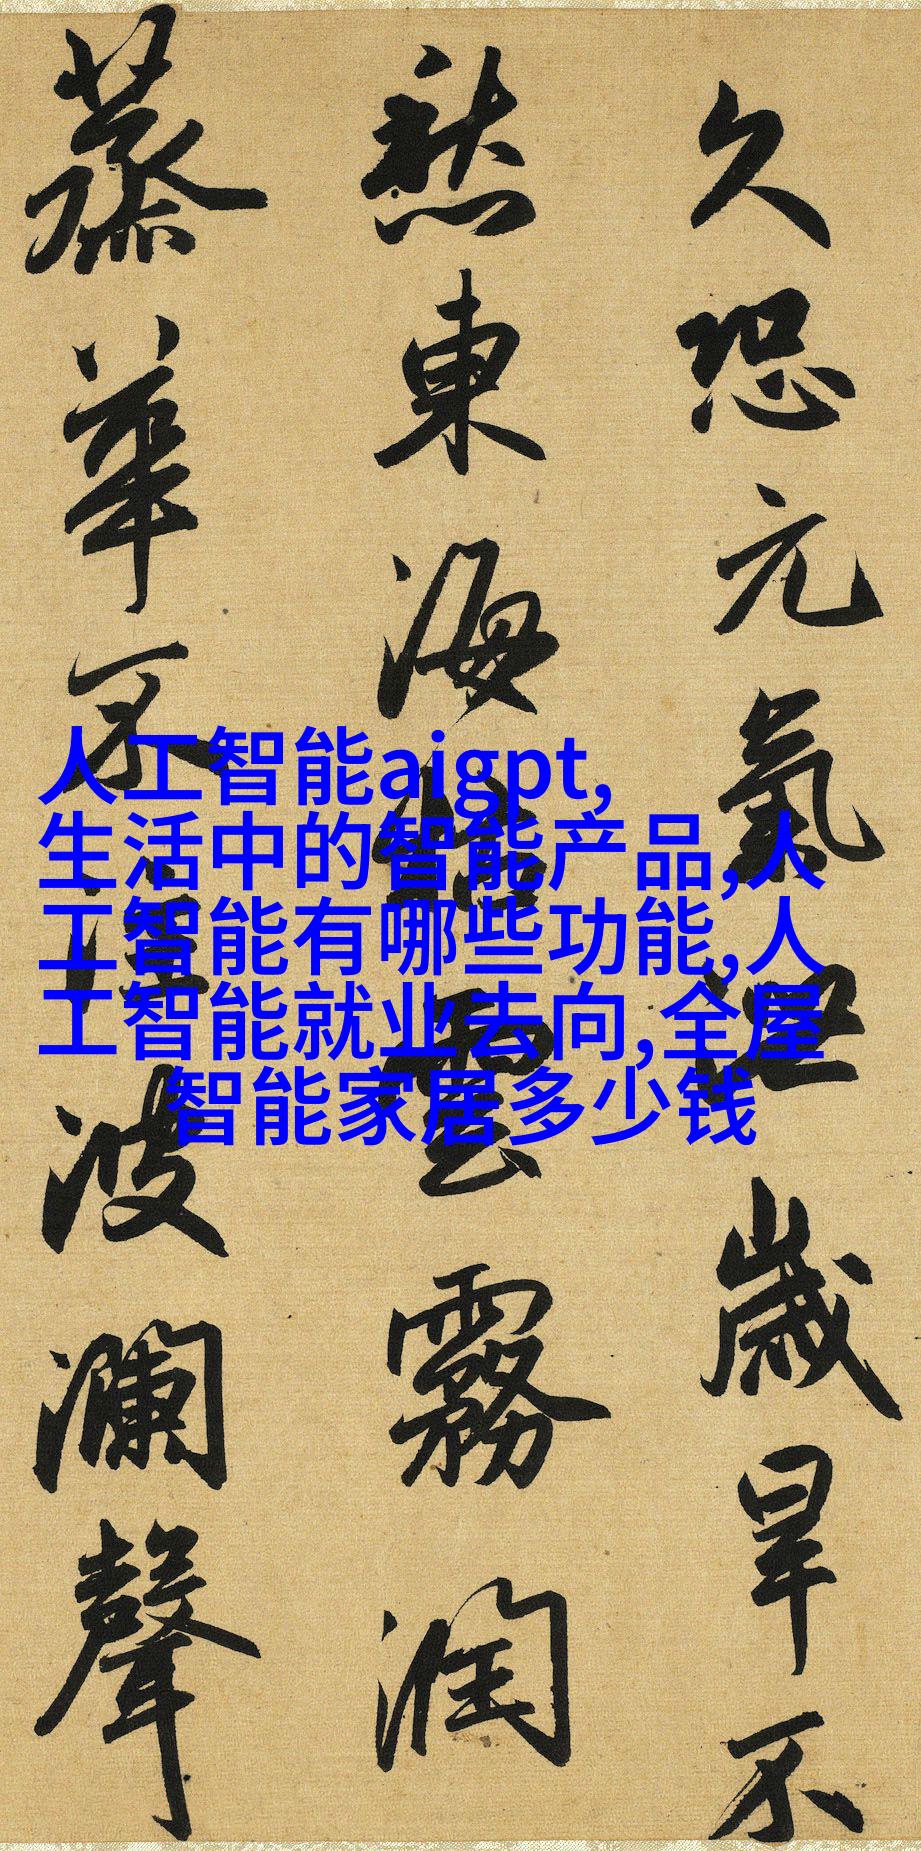 久恐元氣泄歲旱不
愁東海枯雲霧潤
蒸華不注波瀾聲
人工智能aigpt,
生活中的智能产品,人
工智能有哪些功能,人
工智能就业去向,全屋
智能家居多少钱